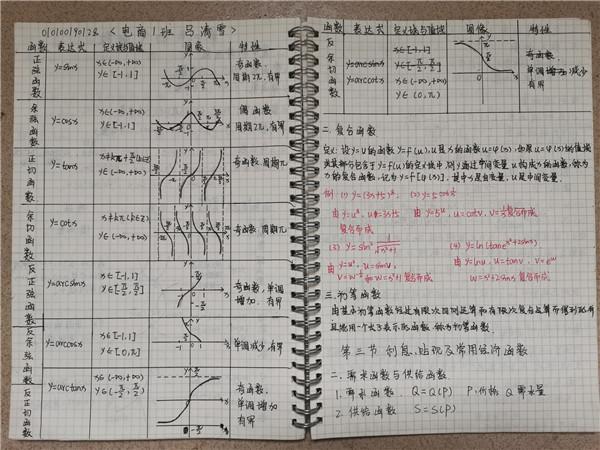 010100190128 <电商1班 吕清雪>
函数 表达式 定义域与值域 图象 特性
正弦函数 y=sinx x∈(-∞,+∞) y∈[-1,1] 奇函数 周期2π,有界
余弦函数 y=cosx x∈(-∞,+∞) y∈[-1,1] 偶函数 周期2π,有界
正切函数 y=tanx y∈(-∞,+∞) 奇函数 周期π
余切函数 y=cotx x≠kπ(k∈Z) y∈(-∞,+∞) 奇函数 周期π
反正弦函数 y=arcsinx x∈[-1,1] y∈[-π/2,π/2] 奇函数,单调增加,有界
反余弦函数 y=arccosx x∈[-1,1] y∈[0,π] 单调减少,有界
反正切函数 y=arctanx x∈(-∞,+∞) y∈(-π/2,π/2) 奇函数,单调增加 有界
函数 表达式 定义域与值域 图像 特性
反余切函数 y=arccotx x∈(-∞,+∞) y∈(0,π) 单调减少 有界
二.复合函数
定义:设y=u的函数y=f(u),u是x的函数u=φ(x),如果u=φ(x)的值域
或其部分包含于y=f(u)的定义域中,则y通过中间变量u构成x的函数,称为
x的复合函数,记为y=f[φ(x)],其中x是自变量,u是中间变量.
例 (1) y=(3x+5)
由 u=3x+5 复合而成
由y=5u, u=cotv, 复合而成
(4) y=ln(tane^(x²+2sinx))
由y=lnu, u=tanv, v=e^w
w=x²+2sinx 复合而成
三.初等函数
由基本初等函数经过有限次四则运算和有限次复合运算而得到的,并
且能用一个式子表示的函数,称为初等函数.
第三节 利息、贴现及常用经济函数
二.需求函数与供给函数
1.需求函数 Q=Q(P) P:价格 Q:需求量
2.供给函数 S=S(P)